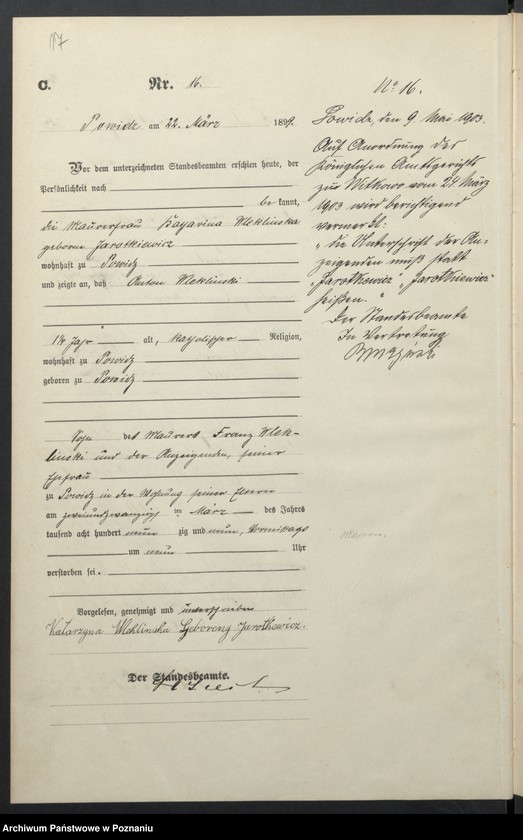 17
C.
Nr. 16.
Powidz am 22. März 1899.
Vor dem unterzeichneten Standesbeamten erschien heute, der
Persönlichkeit nach
be kannt,
die Maurerfrau Katarina Wleklinska
geborne Jarotkiewicz
wohnhaft zu Powidz
und zeigte an, daß Anton Wleklinski
14 Jahr alt, katolischer Religion,
wohnhaft zu Powidz
geboren zu Powidz
Sohn des Maurers Franz Wlek-
linski und der Anzeigenden, seiner
Ehefrau
zu Powidz in der Wohnung seiner Eltern
am zweiundzwanzigsten März des Jahres
tausend acht hundert neun zig und neun, Vormittags
um neun Uhr
verstorben sei.
Vorgelesen, genehmigt und unterschrieben
Katarzyna Wleklinska Geboreny Jarotkewicz.
Der Standesbeamte.
No 16.
Powidz, den 9. Mai 1903.
Auf Anordnung des
Königlichen Amtsgerichts
zu Witkowo vom 24 März
1903 wird berichtigend
vermerkt:
„die Unterschrift der An-
zeigenden muß statt
„Jarotkewicz" „Jarotkiewicz"
heißen."
Der Standesbeamte
In Vertretung
Archiwum Państwowe w Poznaniu